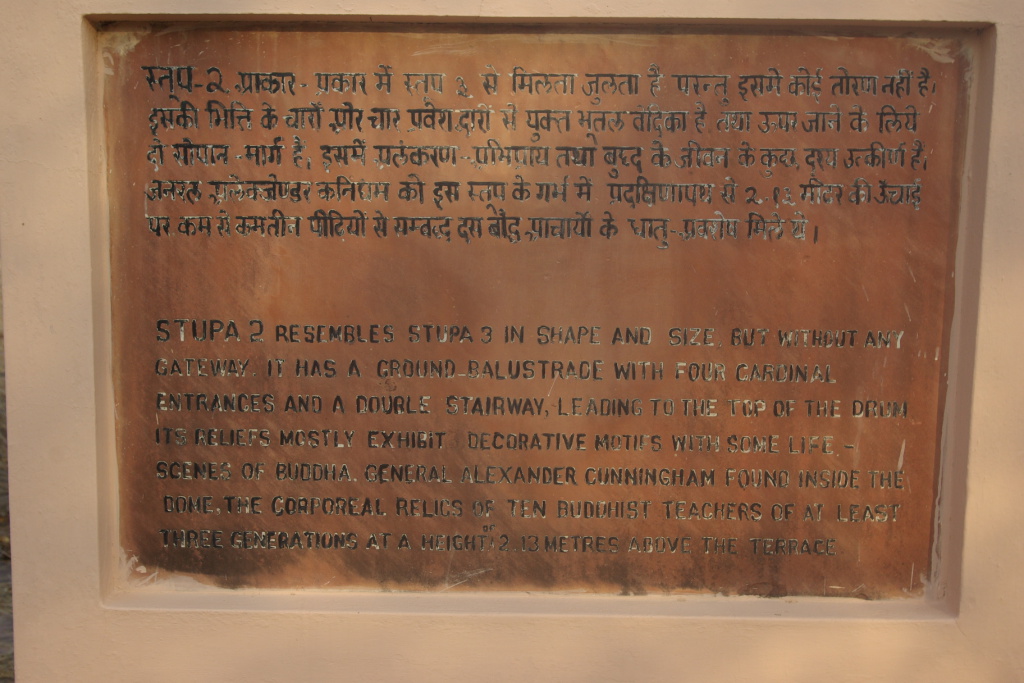 स्तूप-2 आकार-प्रकार में स्तूप 3 से मिलता जुलता है परन्तु इसमें कोई तोरण नहीं है।
इसकी भित्ति के चारों ओर चार प्रवेश द्वारों से युक्त भूतल वेदिका है तथा ऊपर जाने के लिये
दो सोपान-मार्ग है। इसमें अलंकरण-अभिप्राय तथा बुद्ध के जीवन के कुछ दृश्य उत्कीर्ण है।
जनरल अलेक्जेण्डर कनिंघम को इस स्तूप के गर्भ में प्रदक्षिणापथ से 2.13 मीटर की ऊँचाई
पर कम से कम तीन पीढियों से सम्बद्ध दस बौद्ध आचार्यो के धातु-अवशेष मिले थे।
STUPA 2 RESEMBLES STUPA 3 IN SHAPE AND SIZE, BUT WITHOUT ANY
GATEWAY. IT HAS A GROUND-BALUSTRADE WITH FOUR CARDINAL
ENTRANCES AND A DOUBLE STAIRWAY, LEADING TO THE TOP OF THE DRUM.
ITS RELIEFS MOSTLY EXHIBIT DECORATIVE MOTIFS WITH SOME LIFE-
SCENES OF BUDDHA. GENERAL ALEXANDER CUNNINGHAM FOUND INSIDE THE
DOME, THE CORPOREAL RELICS OF TEN BUDDHIST TEACHERS OF AT LEAST
THREE GENERATIONS AT A HEIGHT OF 2.13 METRES ABOVE THE TERRACE